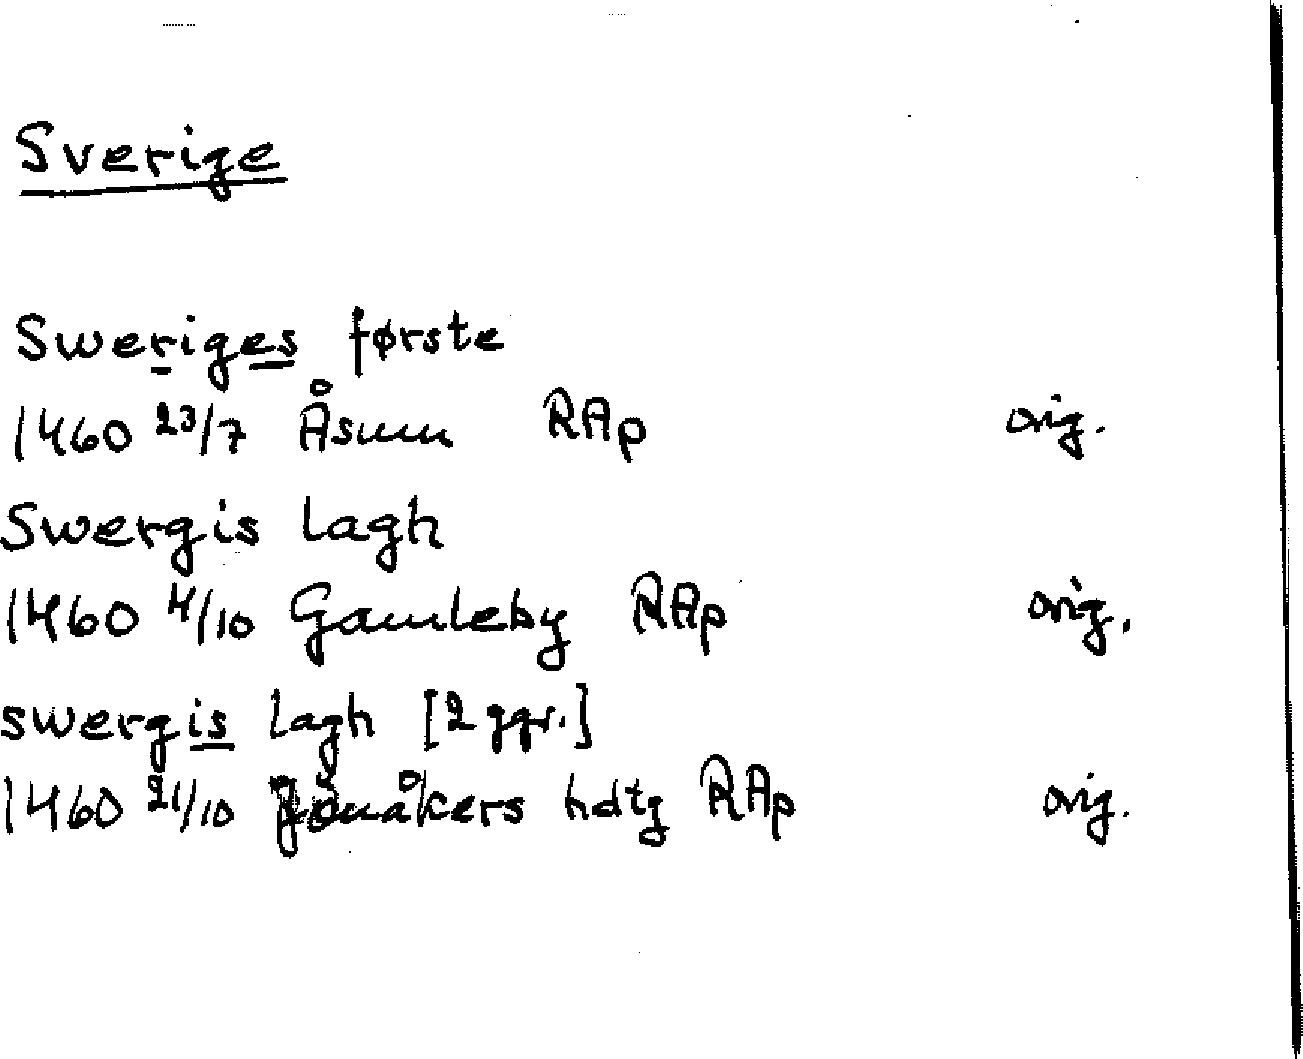 Sverige
Sweriges første
1460 23/7 Åsum RAp orig.
Swergis lagh
1460 4/10 Gamleby RAp orig.
swergis lagh [2 ggr.]
1460 21/10 Jönåkers hdtg RAp orig.